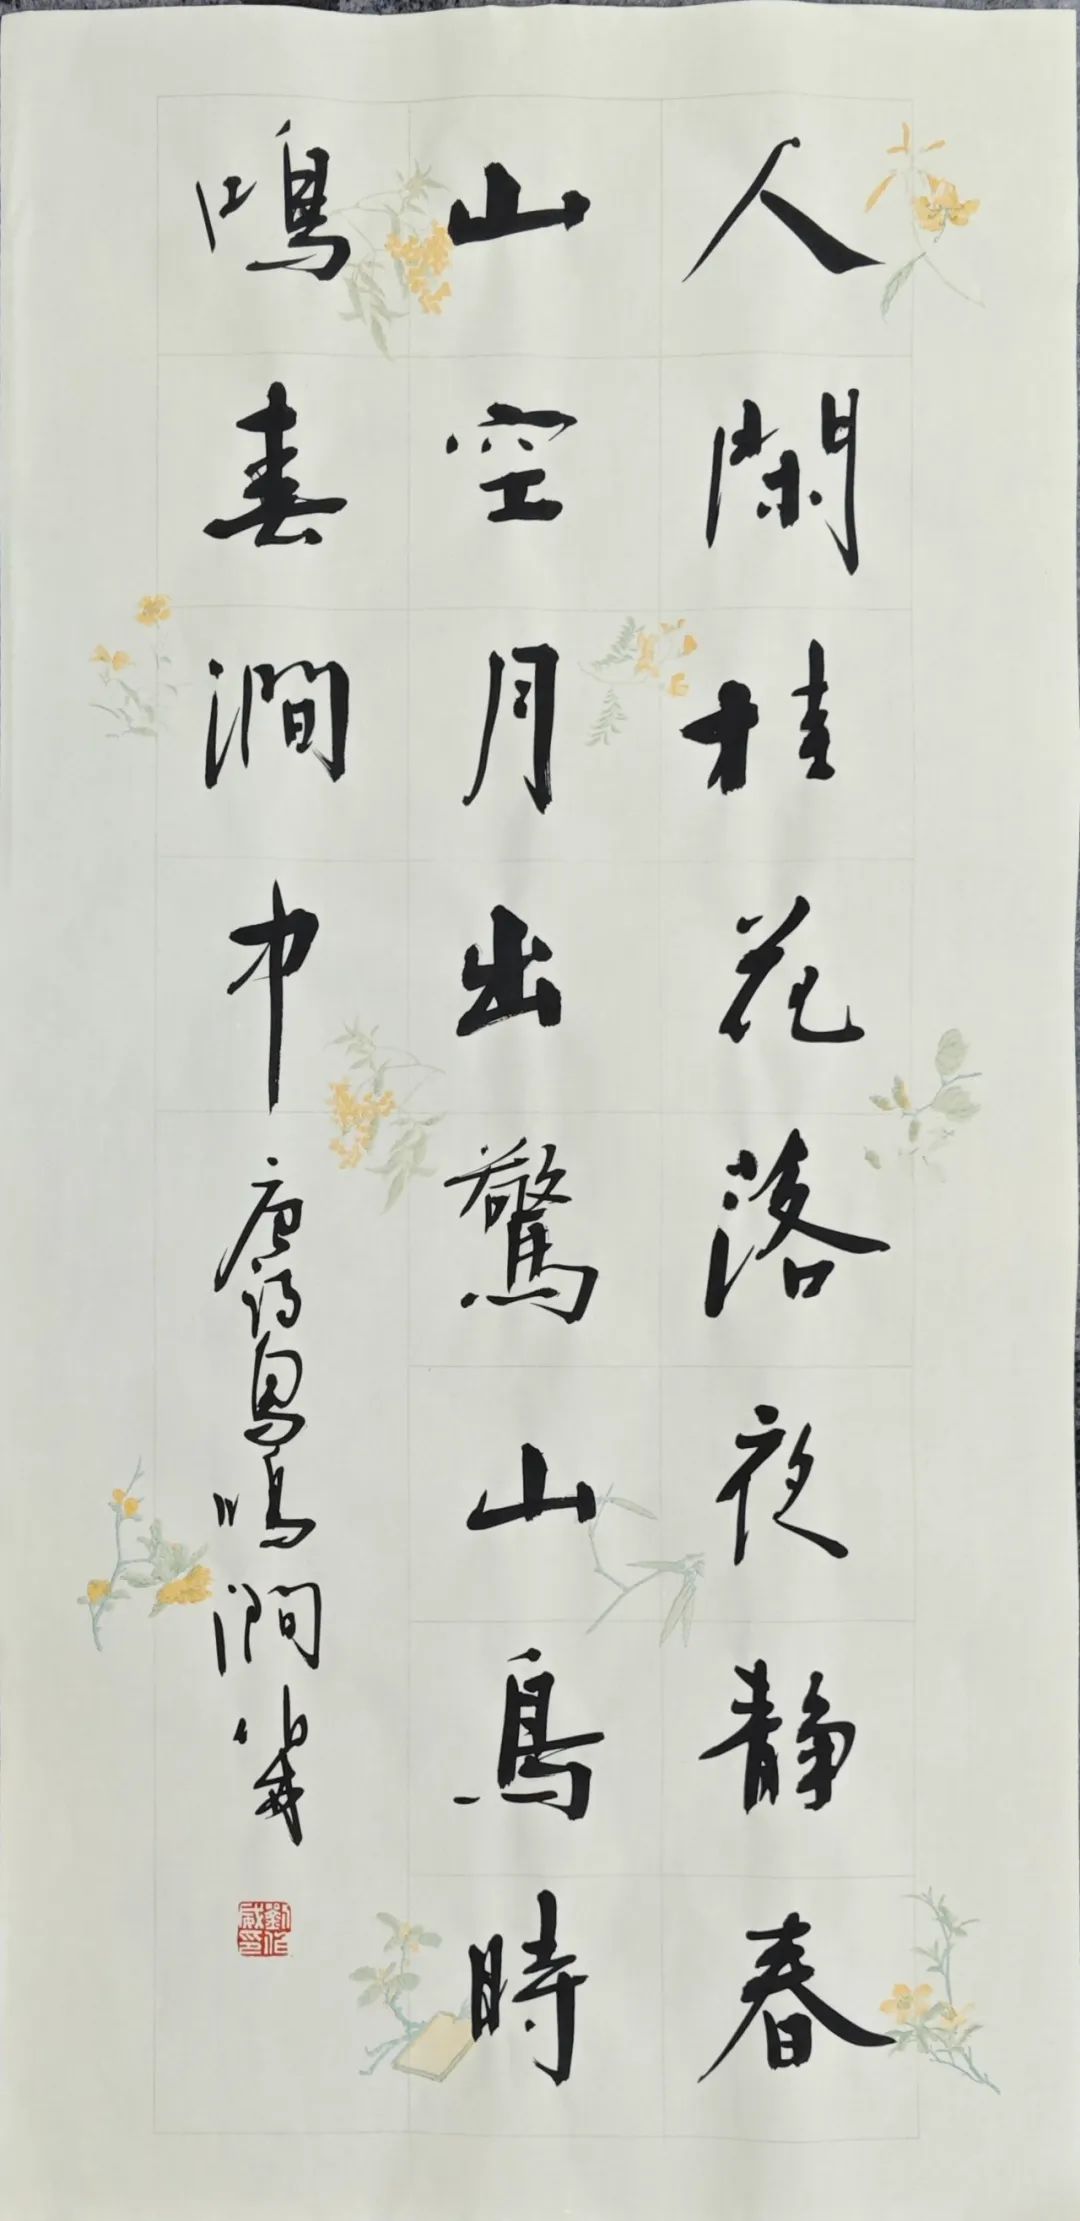 人閑桂花落夜静春
山空月出驚山鳥時
鳴春澗中
唐詩鳥鳴澗 作威
劉作威印